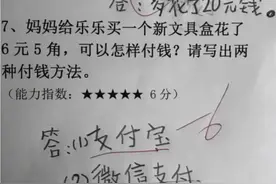 答：多花了20元钱。
7、妈妈给乐乐买一个新文具盒花了
6元5角，可以怎样付钱？请写出两
种付钱方法。
（能力指数：★★★★★ 6分）
答：(1)支付宝
-6
(2)微信支付